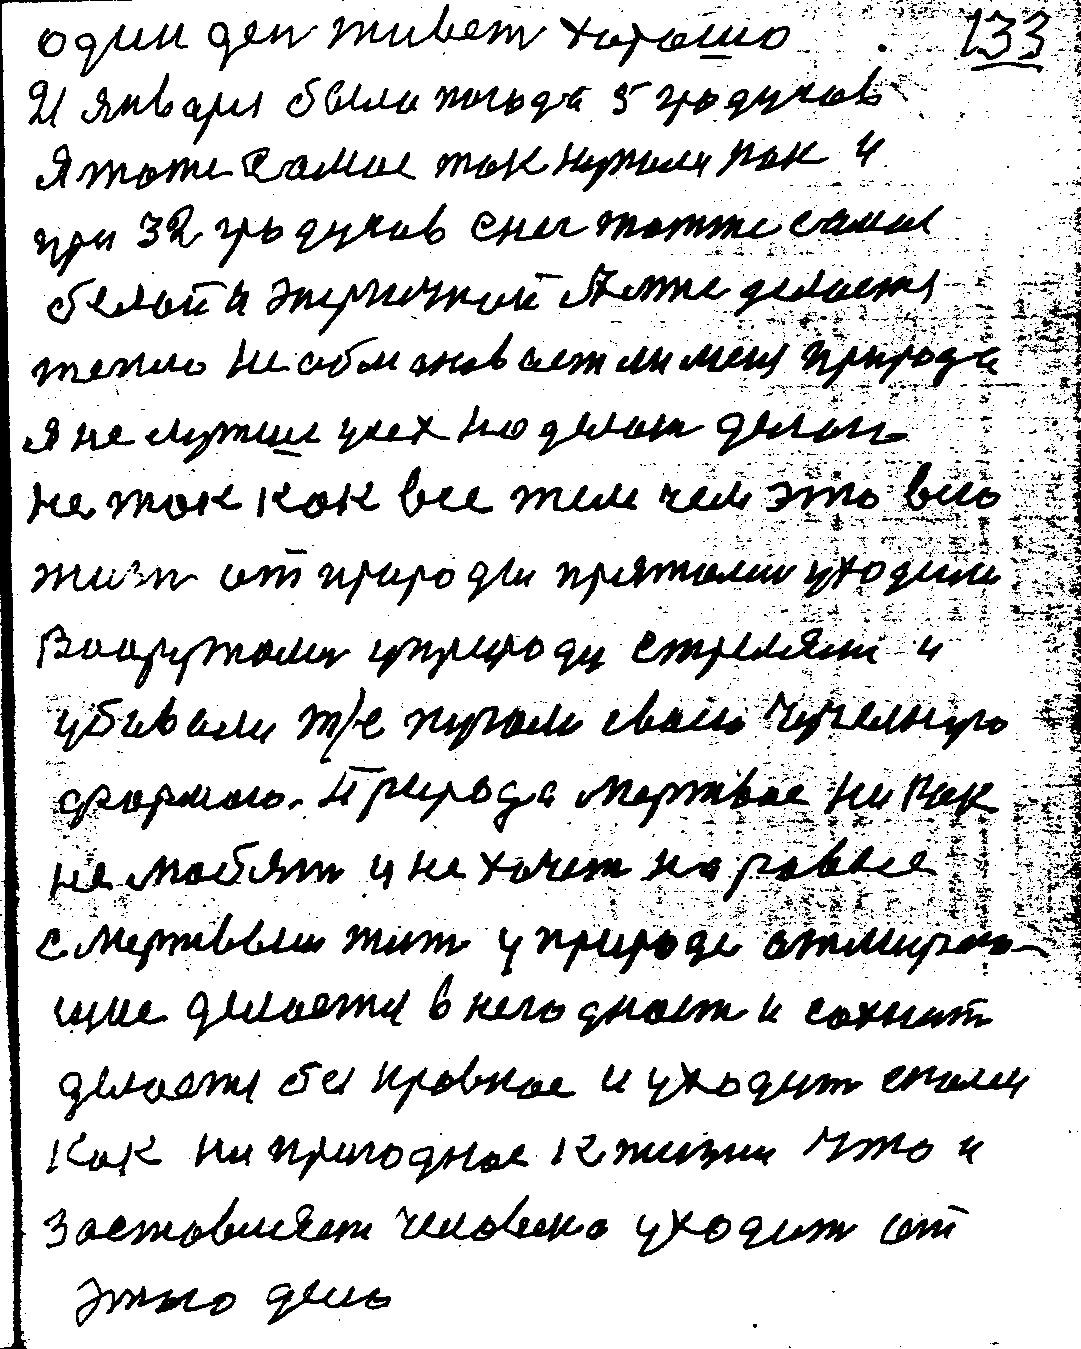 один ден живет хорошо 133
21 января была погода 5 градусов
я тоже самое так купали как и
при 32 градусов снег тотже самое
белой и энергичной Позже делается
тепло не обмановает ли меня природа
я не лутше усех но делаю дело
не так как все тем чем это всю
жизн от природы прятали уходили
Вооружали уприроду стреляли и
убивали т/е пугали своею чучелную
формою. Природа мертвое ни как
не любят и не хочет на равне
с мертвым жит у природе отмираю-
щие делается в негодност и сохнит
делается бескровное и уходит споли
как ни пригодное к жизни Что и
заставляет человека уходит от
этого дела